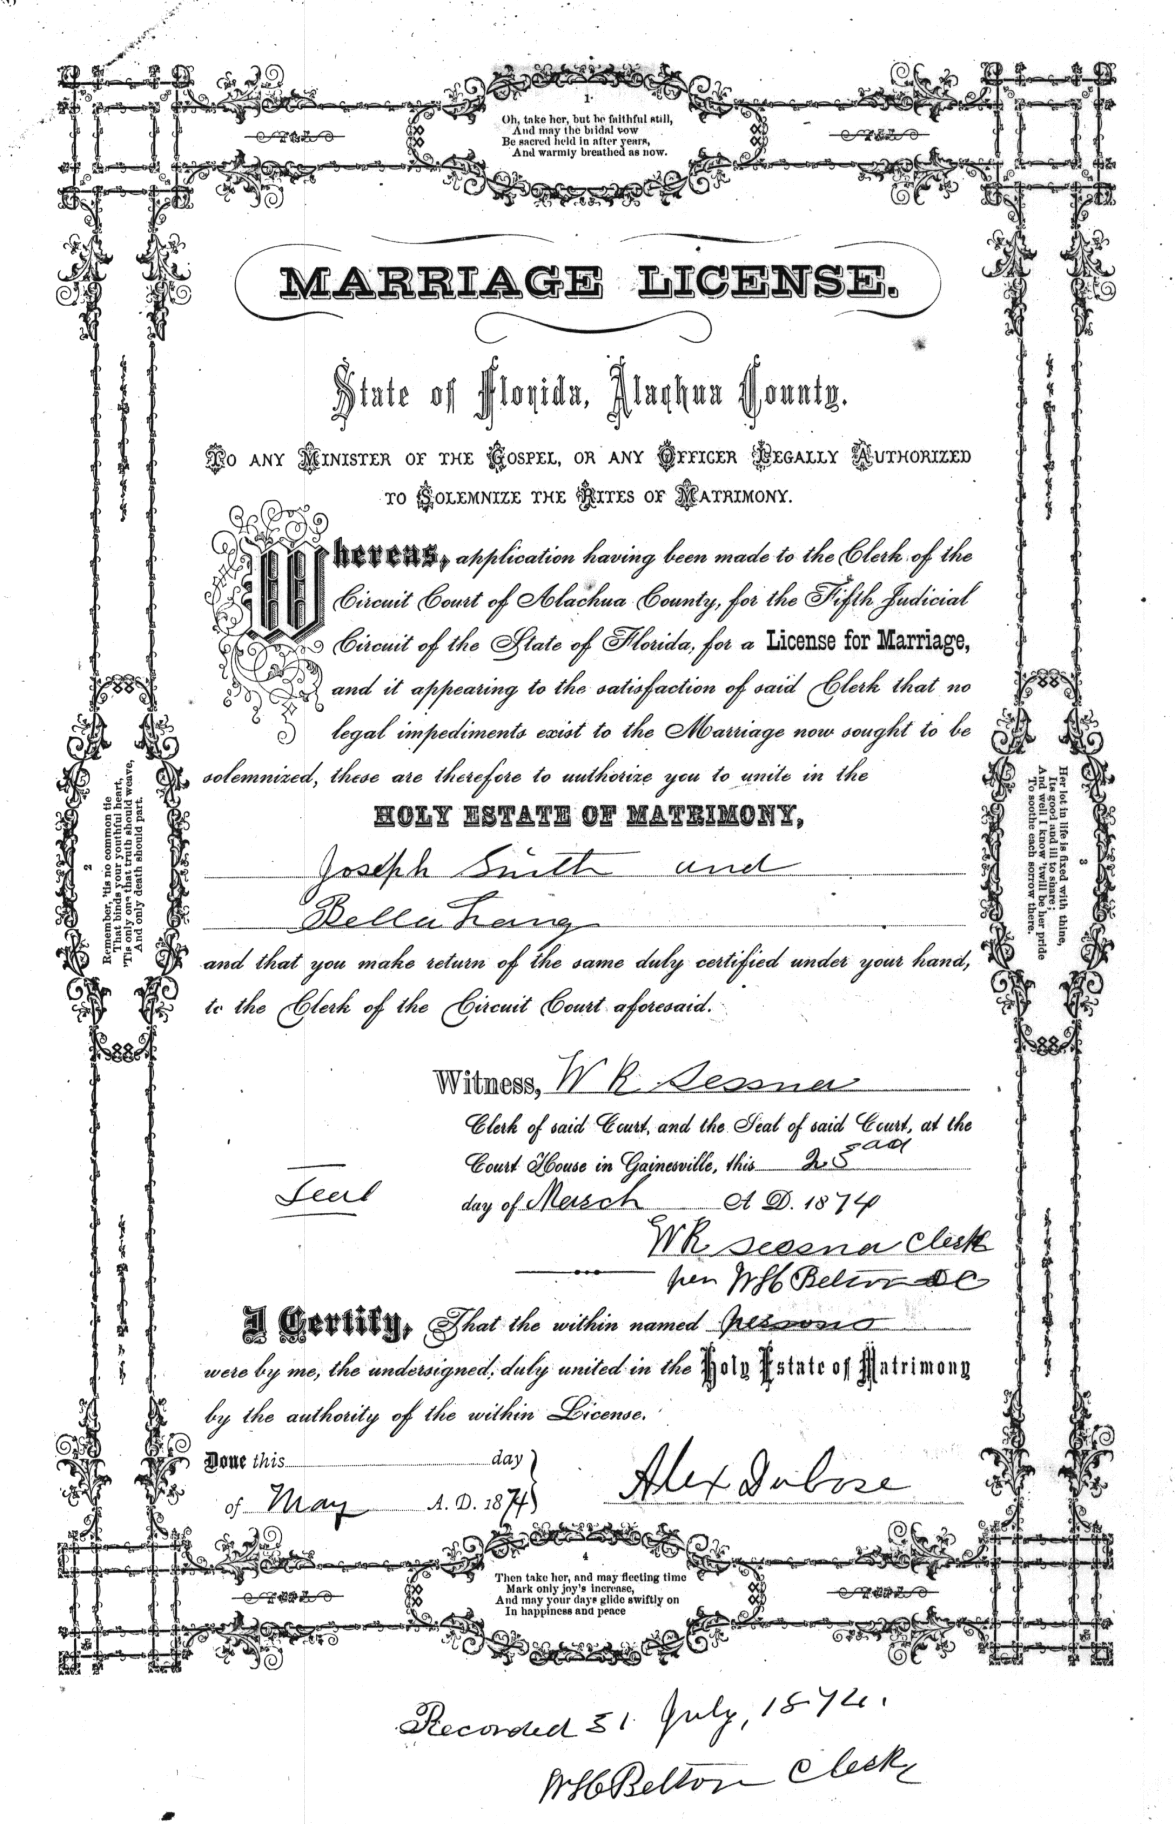 1
Oh, take her, but be faithful still,
And may the bridal vow
Be sacred held in after years,
And warmly breathed as now.
MARRIAGE LICENSE.
State of Florida, Alachua County.
TO ANY MINISTER OF THE GOSPEL, OR ANY OFFICER LEGALLY AUTHORIZED
TO SOLEMNIZE THE RITES OF MATRIMONY.
Whereas, application having been made to the Clerk of the
Circuit Court of Alachua County, for the Fifth Judicial
Circuit of the State of Florida, for a License for Marriage,
and it appearing to the satisfaction of said Clerk that no
legal impediments exist to the Marriage now sought to be
solemnized, these are therefore to authorize you to unite in the
HOLY ESTATE OF MATRIMONY,
Joseph Smith and
Bella
and that you make return of the same duly certified under your hand,
to the Clerk of the Circuit Court aforesaid.
Witness, W R Sessna
Clerk of said Court, and the Seal of said Court, at the
Court House in Gainesville, this
day of March A. D. 1874
Seal
W R Sessna Clerk
per W H Belton DC
I Certify, That the within named persons
were by me, the undersigned, duly united in the Holy Estate of Matrimony
by the authority of the within License.
Done this day
of May A. D. 1874
Alex Dubose
2
Remember, 'tis no common tie
That binds your youthful heart,
'Tis only one that truth should weave,
And only death should part.
3
Her lot in life is fixed with thine,
Its good and ill to share;
And well I know 'twill be her pride
To soothe each sorrow there.
4
Then take her, and may fleeting time
Mark only joy's increase,
And may your days glide swiftly on
In happiness and peace
Recorded 31 July, 1874.
W H Belton Clerk